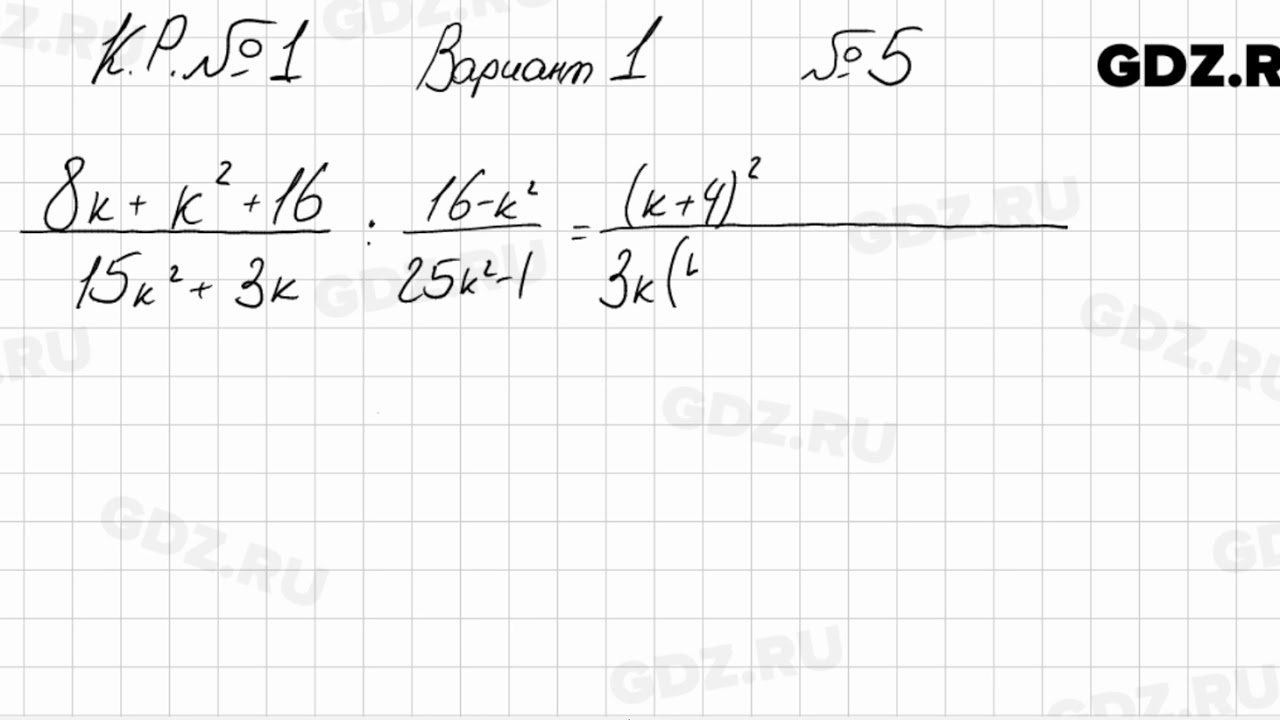 К.Р. №1 Вариант 1 №5 GDZ.R
(8к + к² + 16)/(15к² + 3к) : (16-к²)/(25к²-1) = (к+4)²/3к(
GDZ.RU
GDZ.RU
GDZ.RU
GDZ.RU
GDZ.RU
GDZ.RU
GDZ.RU
GDZ.RU
GDZ.RU